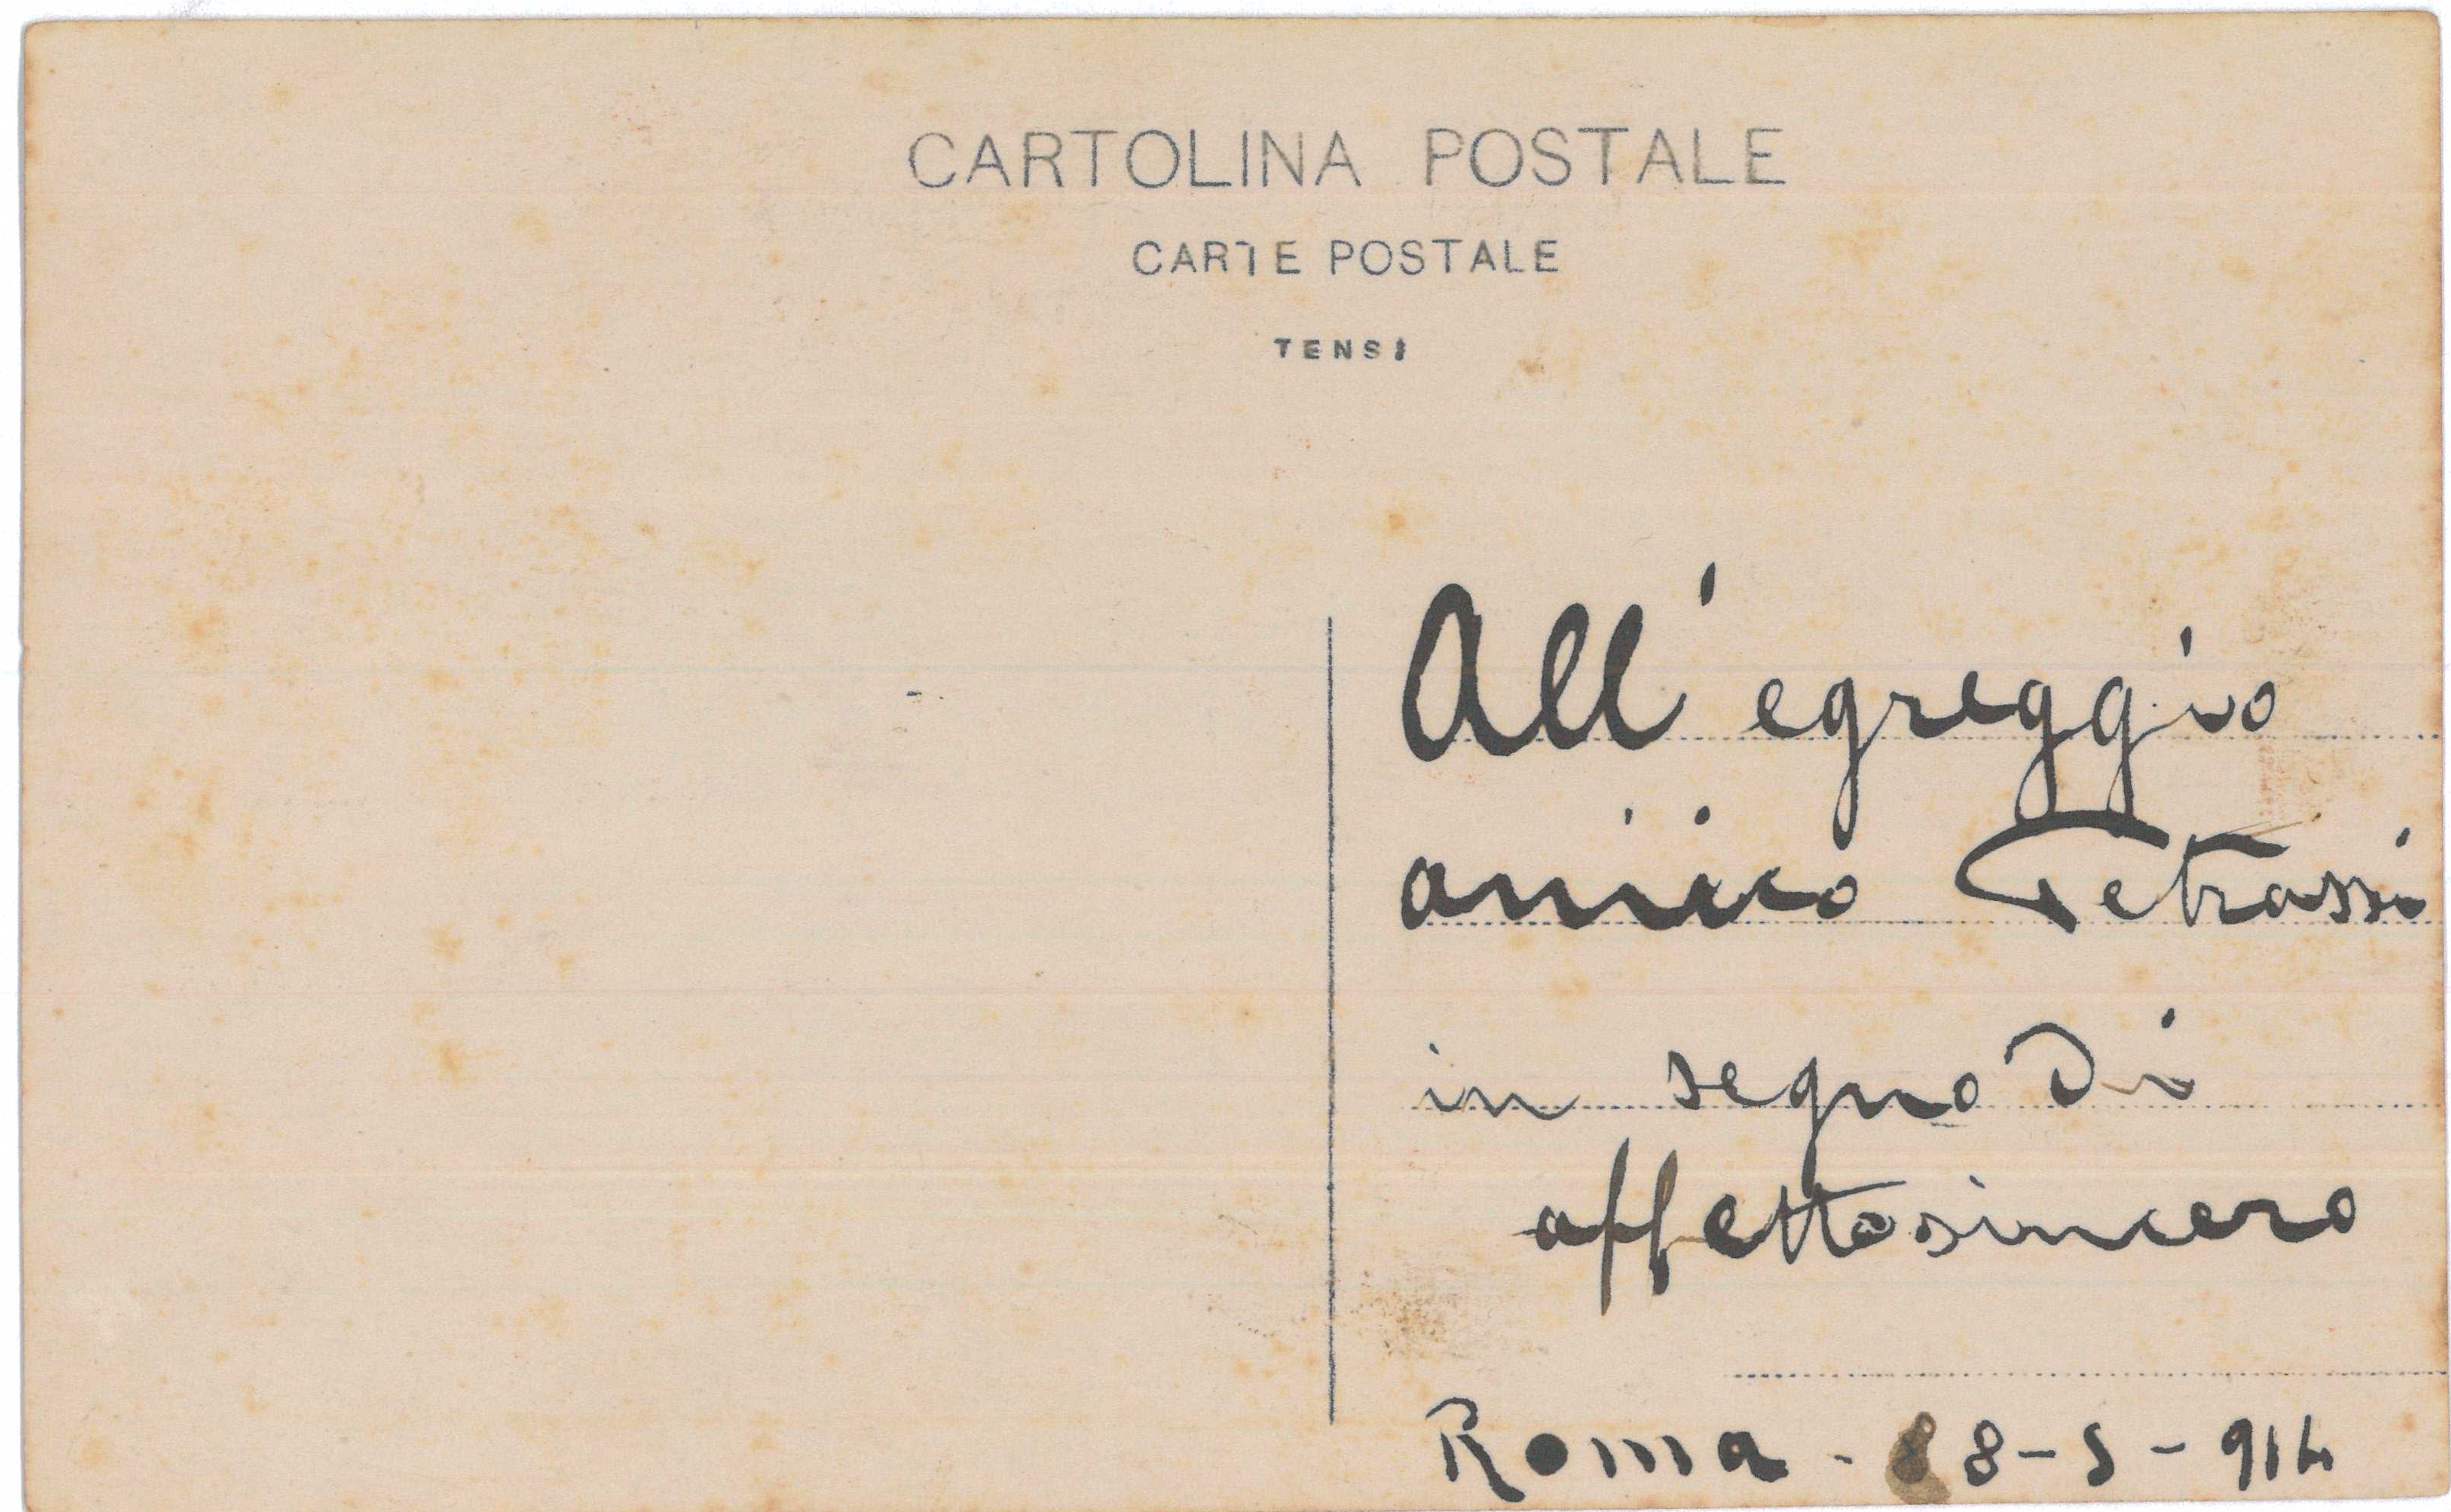 CARTOLINA POSTALE
CARTE POSTALE
TENSI
All' egreggio
amico Petrassi
in segno di
affetto sincero
Roma - 8-5-914